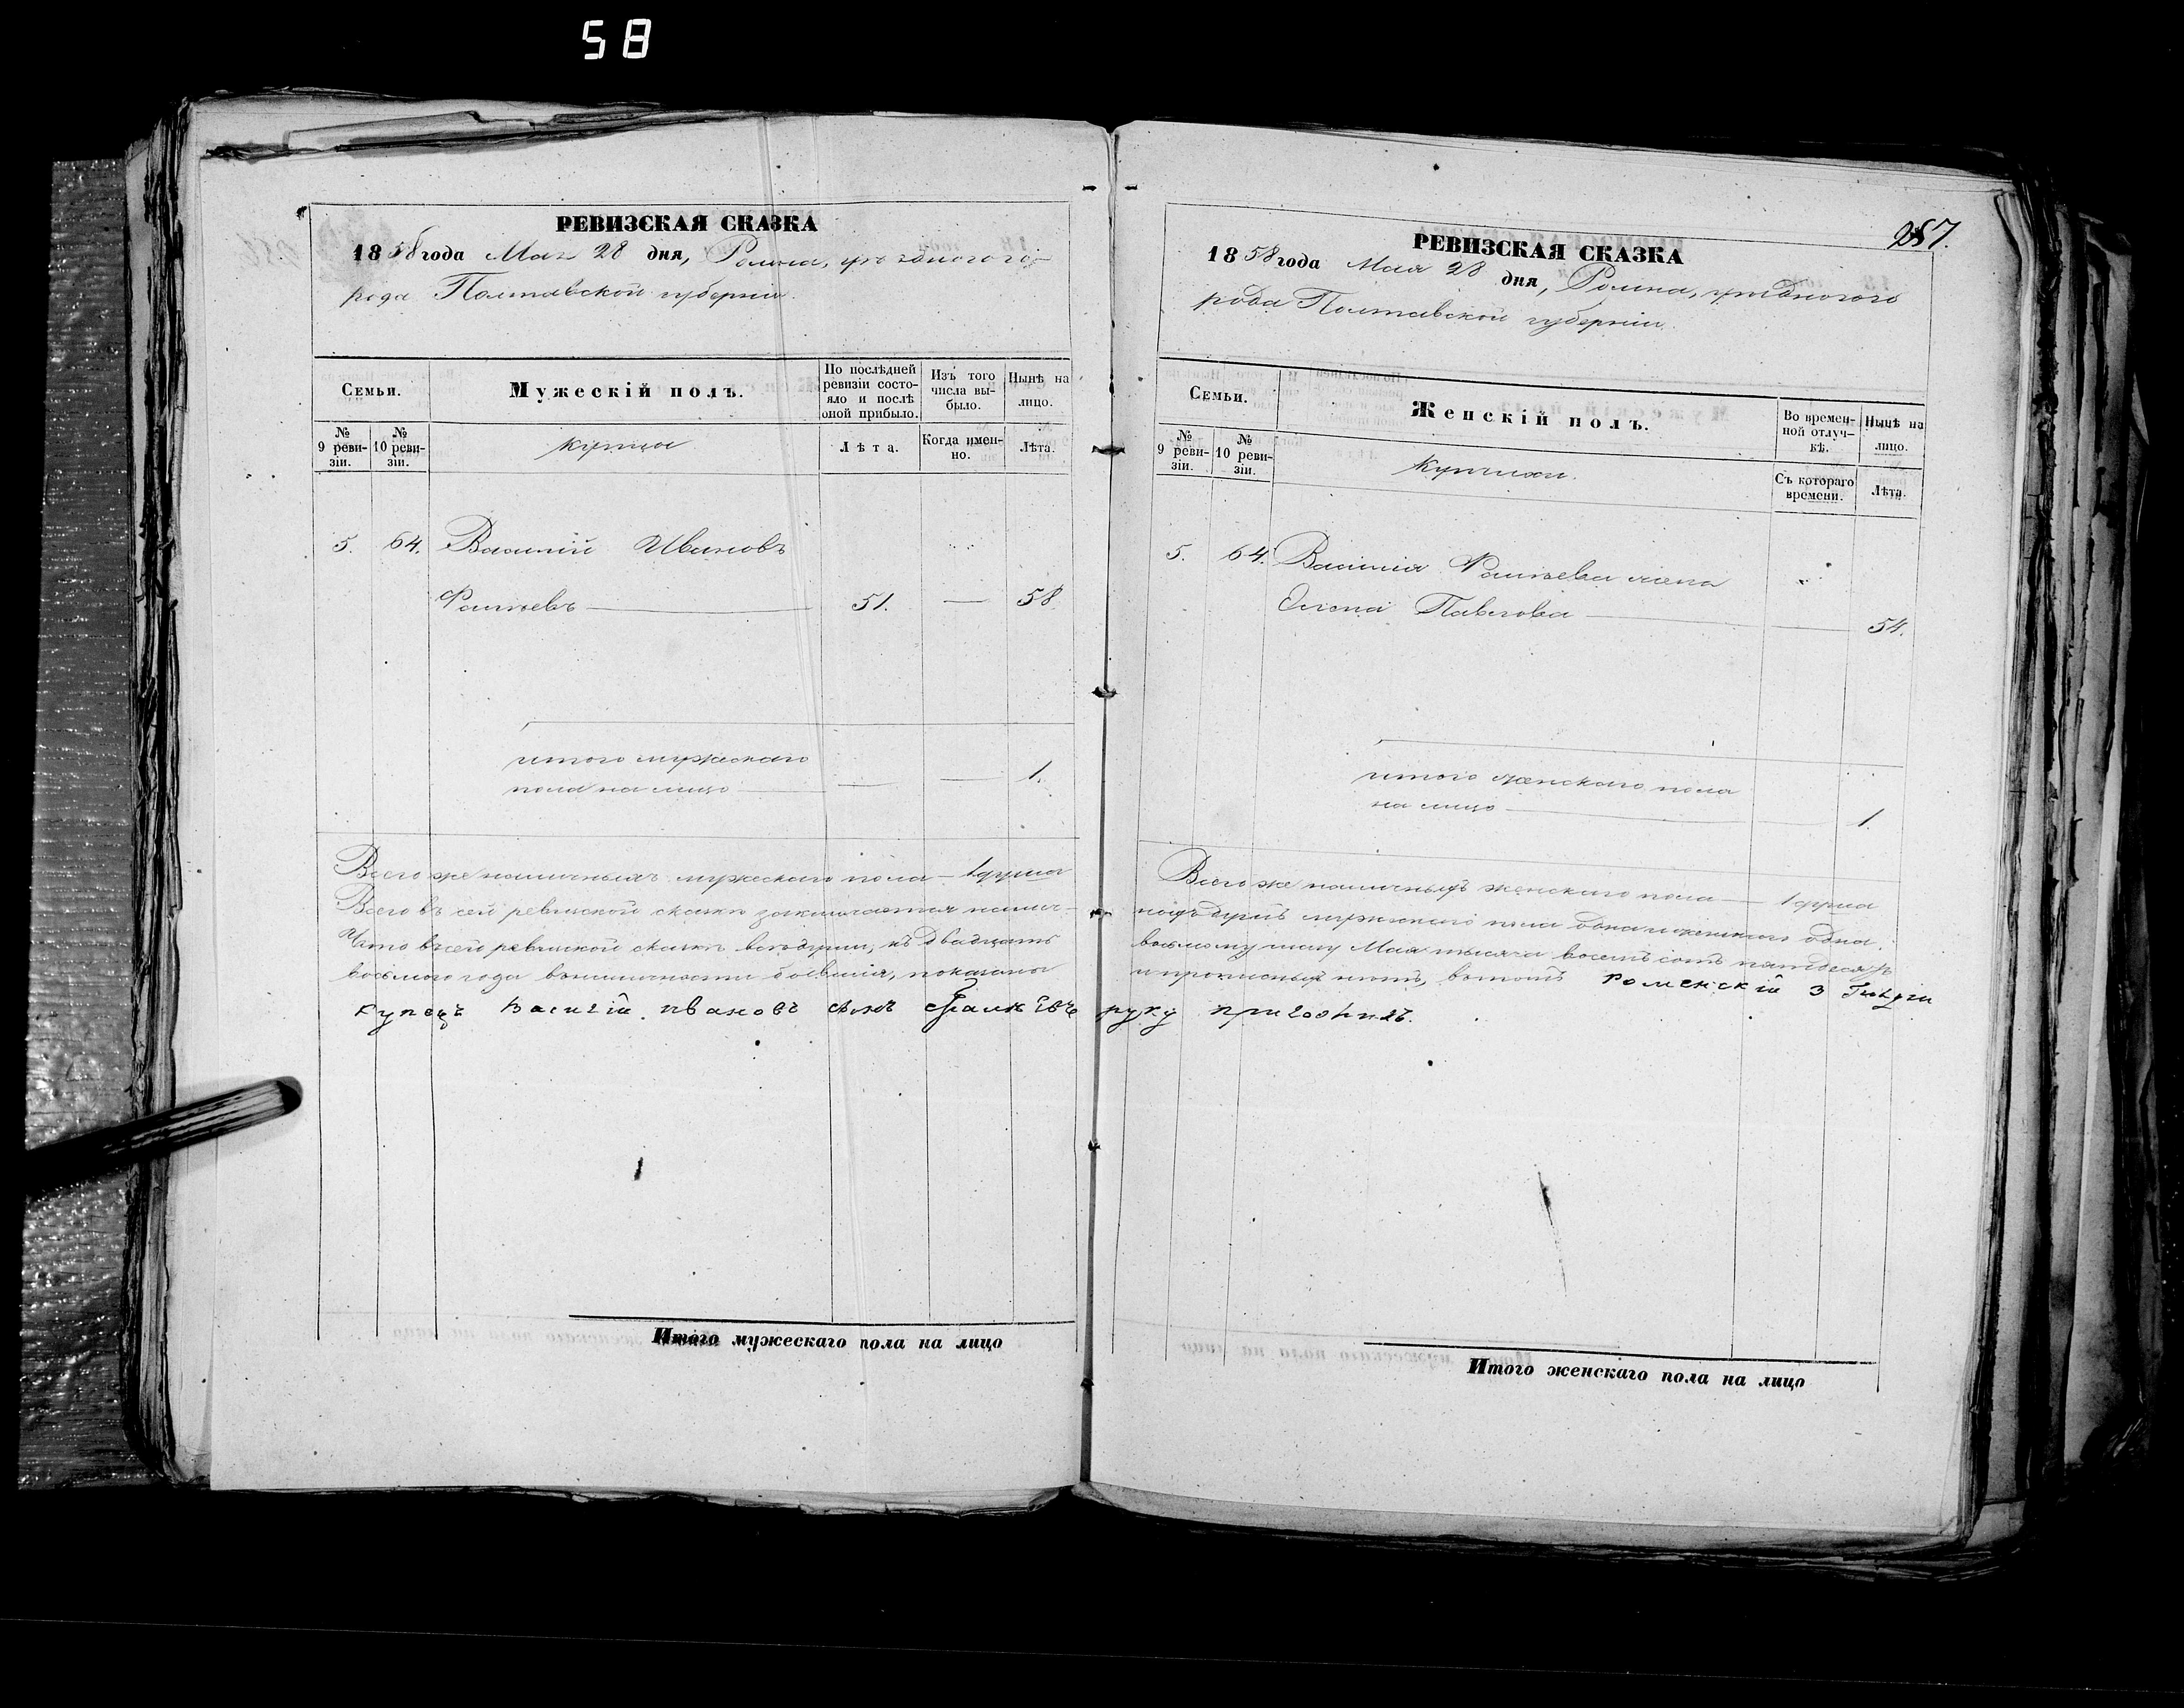 58
РЕВИЗСКАЯ СКАЗКА
1858 года Мая 28 дня, Ромна, уѣзднаго го-
рода Полтавской губерніи.
Семьи.
Мужескій полъ.
По послѣдней ревизіи состояло и послѣ оной прибыло.
Изъ того числа выбыло.
Нынѣ на лицо.
№ 9 ревизіи.
№ 10 ревизіи.
купцы
Лѣта.
Когда именно.
Лѣта.
5. 64. Василій Ивановъ
51. — 58
итого мужескаго
пола на лицо — — 1.
Всего же наличныхъ мужескаго пола — 1 душа
Всего въ сей ревизской сказкѣ заключается налич-
Что въ сей ревизской сказкѣ всѣ души, къ двадцать
восьмого года въ наличности бывшія, показаны
купецъ Василій ивановъ сынъ
Итого мужескаго пола на лицо
287.
РЕВИЗСКАЯ СКАЗКА
1858 года Мая 28 дня, Ромна, уѣзднаго го
рода Полтавской губерніи.
Семьи.
Женскій полъ.
Во временной отлучкѣ.
Нынѣ на лицо.
№ 9 ревизіи.
№ 10 ревизіи.
Купчихи.
Съ котораго времени.
Лѣта.
5. 64. Василія жена
Елена Павлова — 54.
итого женскаго пола
на лицо — 1.
Всего же наличныхъ женскаго пола — 1 душа
ныхъ душъ мужескаго пола одна и женскаго одна.
восьмому маю Мая тысяча восемь сотъ пятдесятъ
и прописныхъ нѣтъ, въ томъ роменскій 3 Гилдіи
руку приложилъ.
Итого женскаго пола на лицо